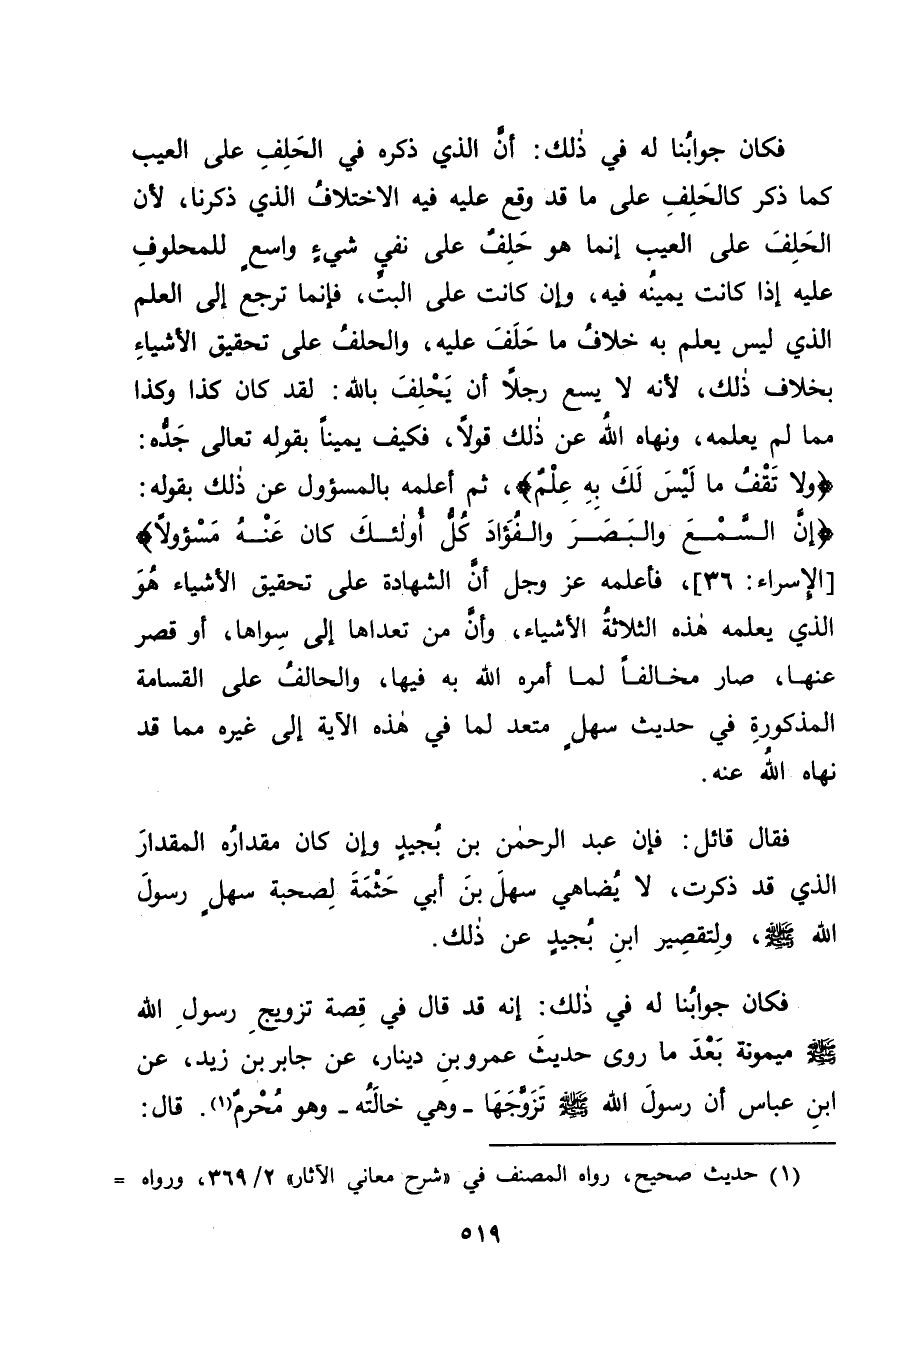 فكان جوابُنا له في ذٰلك: أنَّ الذي ذكره في الحَلِفِ على العيب
كما ذكر كالحَلِفِ على ما قد وقع عليه فيه الاختلافُ الذي ذكرنا، لأن
الحَلِفَ على العيب إنما هو حَلِفٌ على نفي شيءٍ واسعٍ للمحلوفِ
عليه إذا كانت يمينُه فيه، وإن كانت على البتِّ، فإنما ترجع إلى العلم
الذي ليس يعلم به خلافُ ما حَلَفَ عليه، والحلفُ على تحقيق الأشياءِ
بخلاف ذٰلك، لأنه لا يسع رجلاً أن يَحْلِفَ بالله: لقد كان كذا وكذا
مما لم يعلمه، ونهاه اللهُ عن ذٰلك قولاً، فكيف يميناً بقولِه تعالى جَدُّه:
﴿ولا تَقْفُ ما لَيْسَ لَكَ بِهِ عِلْمٌ﴾، ثم أعلمه بالمسؤول عن ذٰلك بقوله:
﴿إنَّ السَّمْعَ والبَصَرَ والفُؤَادَ كُلُّ أُولٰئكَ كان عَنْهُ مَسْؤولاً﴾
[الإسراء: ٣٦]، فأعلمه عز وجل أنَّ الشهادة على تحقيق الأشياء هُوَ
الذي يعلمه هٰذه الثلاثةُ الأشياء، وأنَّ من تعداها إلى سِواها، أو قصر
عنها، صار مخالفاً لما أمره الله به فيها، والحالفُ على القسامة
المذكورةِ في حديث سهلٍ متعد لما في هٰذه الآية إلى غيره مما قد
نهاه اللهُ عنه.
فقال قائل: فإن عبد الرحمٰن بن بُجيدٍ وإن كان مقدارُه المقدارَ
الذي قد ذكرت، لا يُضاهي سهلَ بنَ أبي حَثْمَةَ لِصحبة سهلٍ رسولَ
الله ﷺ، ولِتقصِير ابنِ بُجيدٍ عن ذٰلك.
فكان جوابُنا له في ذٰلك: إنه قد قال في قِصة تزويجِ رسولِ الله
ﷺ ميمونة بَعْدَ ما روى حديثَ عمرو بنِ دينار، عن جابر بن زيد، عن
ابنِ عباس أن رسولَ الله ﷺ تَزَوَّجَهَا ـ وهي خالَتُه ـ وهو مُحْرِمٌ(١). قال:
(١) حديث صحيح، رواه المصنف في «شرح معاني الآثار» ٢/ ٣٦٩، ورواه =
٥١٩